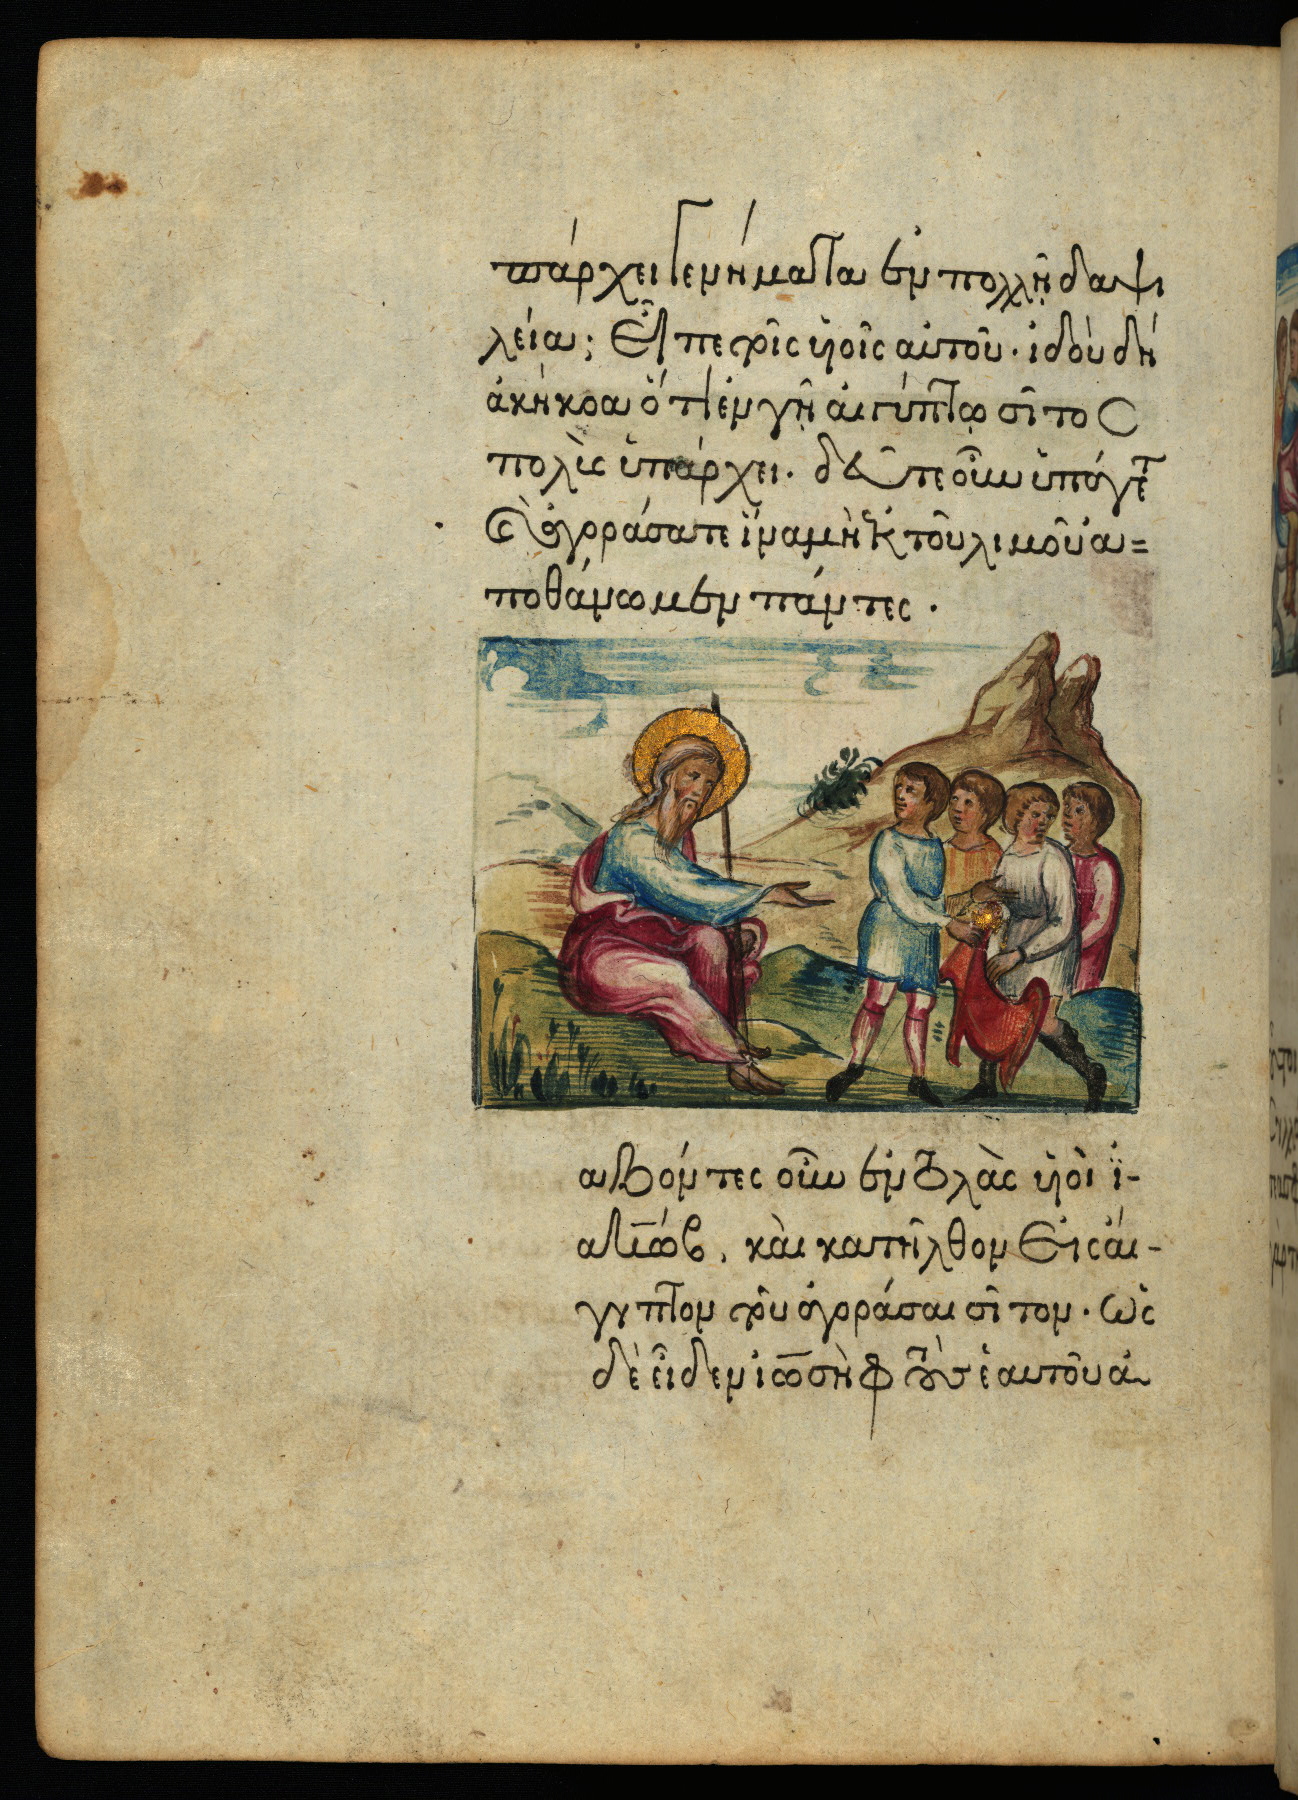 πάρχει γενήματα ἐν πολλῇ δαψι
λεία; Εἶπε τοῖς ὑοῖς αὐτοῦ· ἰδοὺ δὴ
ἀκήκοα ὅτι ἐν γῇ αἰγύπτῳ σῖτος
πολὺς ὑπάρχει. δεῦτε οὖν ὑπάγετε
ἀγοράσατε ἵνα μὴ ἐκ τοῦ λιμοῦ ἀ=
ποθάνωμεν πάντες.
αβόντες οὖν ἐντολὰς ὑοὶ ἰ-
ακώβ, καὶ κατῆλθον Εἰς ἀι-
γυπτον τοῦ ἀγοράσαι σῖτον. Ὡς
δὲ εἶδεν ἰωσὴφ τοὺς ἑαυτοῦ ἀ